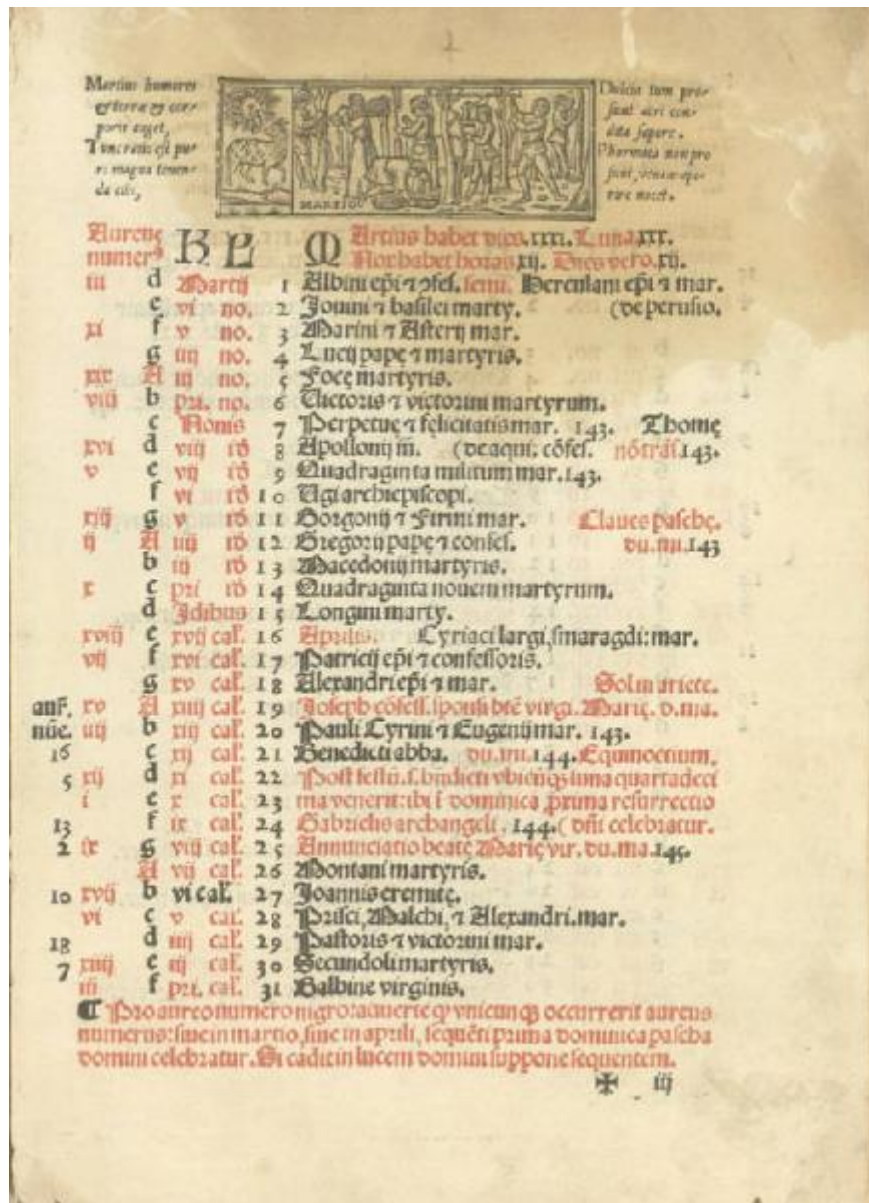 Martius humores
Dulcia tum pro-
MARTIUS
Aureȩ numerꝰ
KL
MArtius habet dies.xxxi. Luna.xxx.
Nox habet horas.xij. Dies vero.xij.
iii d Martij 1 Albini epi ⁊ ꝯfes. semi. Herculani epi ⁊ mar.
e vi no. 2 Jouini ⁊ basilei marty. (de perusio.
xi f v no. 3 Marini ⁊ Asterij mar.
g iiij no. 4 Lucij papȩ ⁊ martyris.
xix A iij no. 5 Focȩ martyris.
viij b pri. no. 6 Uictoris ⁊ victorini martyrum.
c Nonis 7 Perpetuȩ ⁊ felicitatis mar. 143. Thomȩ
xvi d viij id 8 Apollonij m. (de aqui. cõfes. 143.
v e vij id 9 Quadraginta militum mar. 143.
f vi id 10 Ugi archiepiscopi.
xiij g v id 11 Gorgonij ⁊ Firini mar. Claues paschȩ.
ij A iiij id 12 Gregorij papȩ ⁊ confes. du. mi. 143
b iij id 13 Macedonij martyris.
x c pri id 14 Quadraginta nouem martyrum.
d Idibus 15 Longini marty.
xviij e xvij cal. 16 Aprilis. Cyriaci largi, smaragdi: mar.
vij f xvi cal. 17 Patricij epi ⁊ confessoris.
g xv cal. 18 Alexandri epi ⁊ mar. Sol in ariete.
xv A xiiij cal. 19 Joseph cõfess. sponsi btȩ virgi. Mariȩ. d. ma.
iiij b xiij cal. 20 Pauli Cyrini ⁊ Eugenij mar. 143.
16 c xij cal. 21 Benedicti abba. du. mi. 144. Equinoctium.
5 xij d xi cal. 22 Post festũ. s. bñdicti vbicunq luna quartadeci
i e x cal. 23 ma venerit: ibi ĩ dominica prima resurrectio
13 f ix cal. 24 Gabrielis archangeli. 144. (dñi celebratur.
2 ix g viij cal. 25 Annunciatio beatȩ Mariȩ vir. du. ma. 145.
A vij cal. 26 Montani martyris.
10 xvij b vi cal. 27 Joannis eremitȩ.
vi c v cal. 28 Prisci, Malchi, ⁊ Alexandri. mar.
18 d iiij cal. 29 Pastoris ⁊ victorini mar.
7 xiiij e iij cal. 30 Secundoli martyris.
iij f pri. cal. 31 Balbine virginis.
¶ Pro aureo numero nigro: aduerte ꝙ vnicunqꝫ occurrerit aureus
numerus: siue in martio, siue in aprili, sequẽti prima dominica pascha
domini celebratur. Si cadit in lucem domini suppone sequentem.
✠ iij